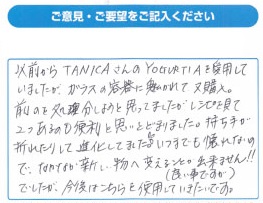 ご意見・ご要望をご記入ください
以前から TANICAさんの YOGURTIAを愛用して
いましたが、ガラスの容器に惹かれて又購入。
前のを処理分しようと思ってましたがレシピを見て
2つあるのも便利と思いとどまりました。持ち手が
折れたりして進化してました。いつまでも壊れないの
で、なかなか新しい物へ変えることが出来ません!!
(良い事ですが)
でしたが、今後はこちらを使用していきたいです。